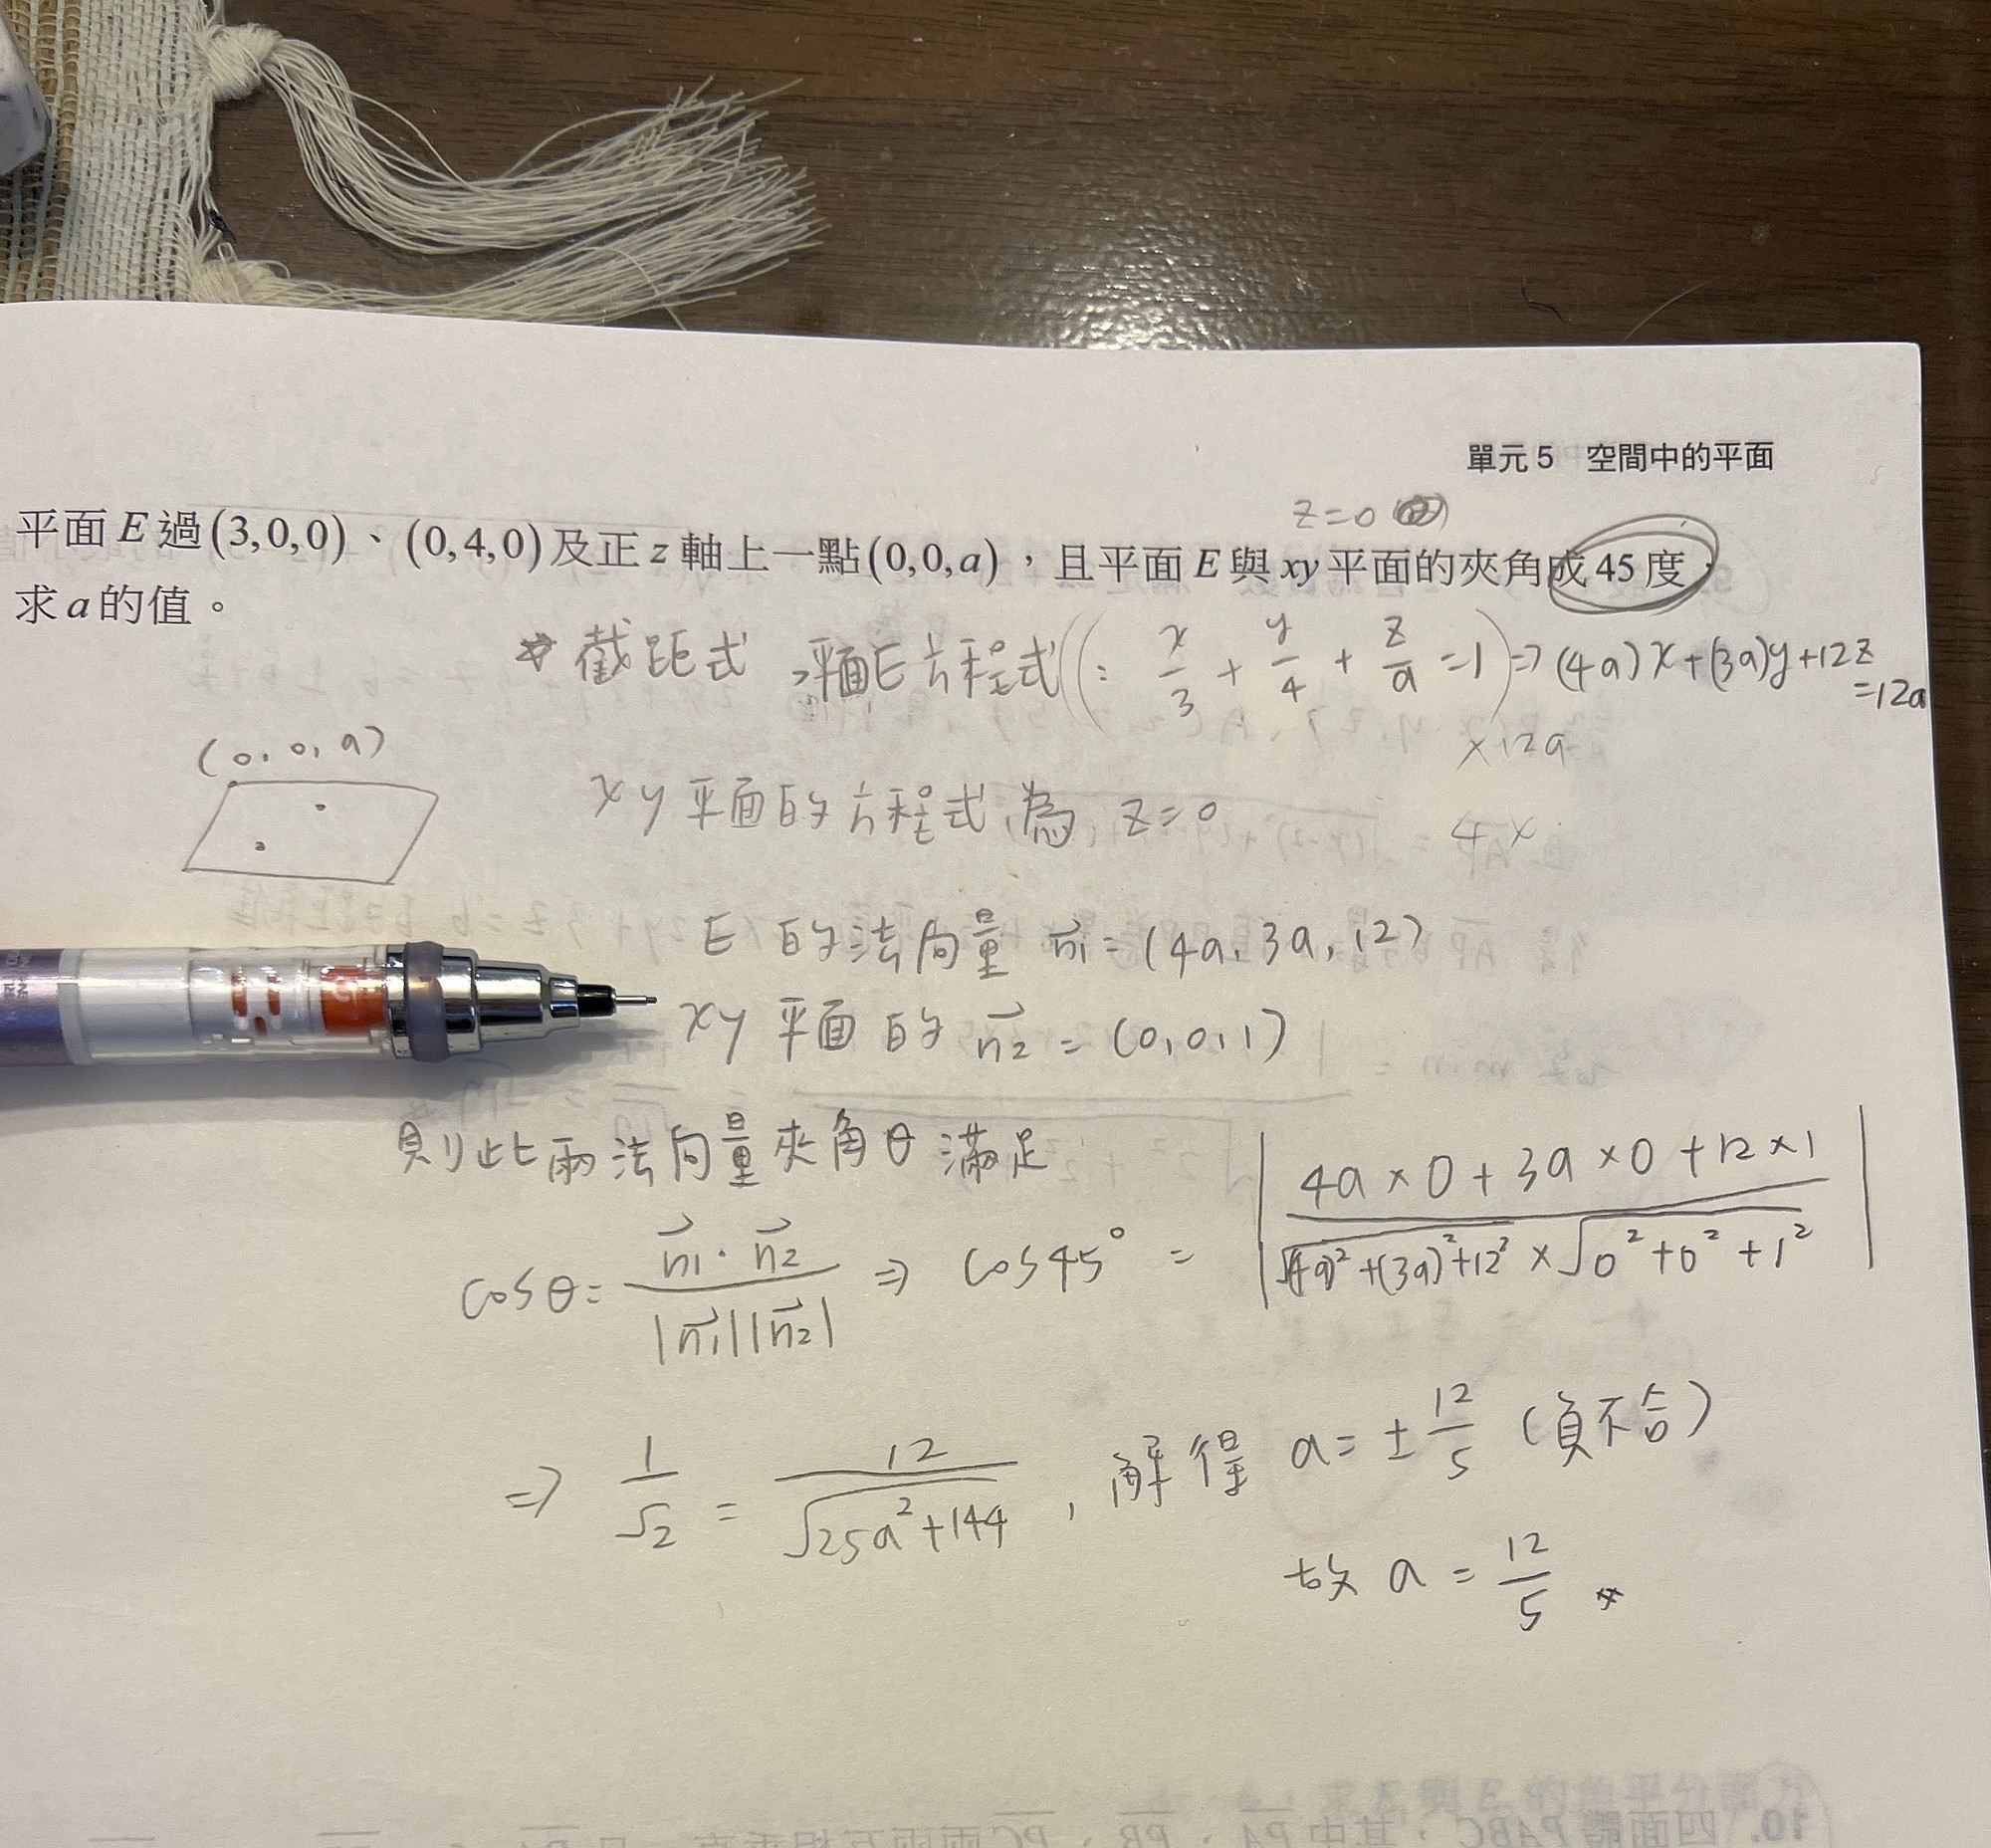 單元 5 空間中的平面
z=0
平面 E 過(3,0,0)、(0,4,0)及正 z 軸上一點(0,0,a),且平面 E 與 xy 平面的夾角成 45 度,
求 a 的值。
截距式 平面E方程式(: x/3 + y/4 + z/a =1) ⇒ (4a)x+(3a)y+12z
=12a
×12a
(0,0,a)
xy平面的方程式為 z=0
4x
E 的法向量 n1⃗ = (4a, 3a, 12)
xy 平面的 n2⃗ = (0,0,1)
則此兩法向量夾角θ滿足
cosθ= n1⃗·n2⃗ / |n1⃗||n2⃗| ⇒ cos45° = | 4a×0+3a×0+12×1 / √(4a)²+(3a)²+12² × √0²+0²+1² |
⇒ 1/√2 = 12/√25a²+144 , 解得 a=±12/5 (負不合)
故 a = 12/5
10. 四面體 PABC,其中 PA、PB、PC 兩兩互相垂直,且